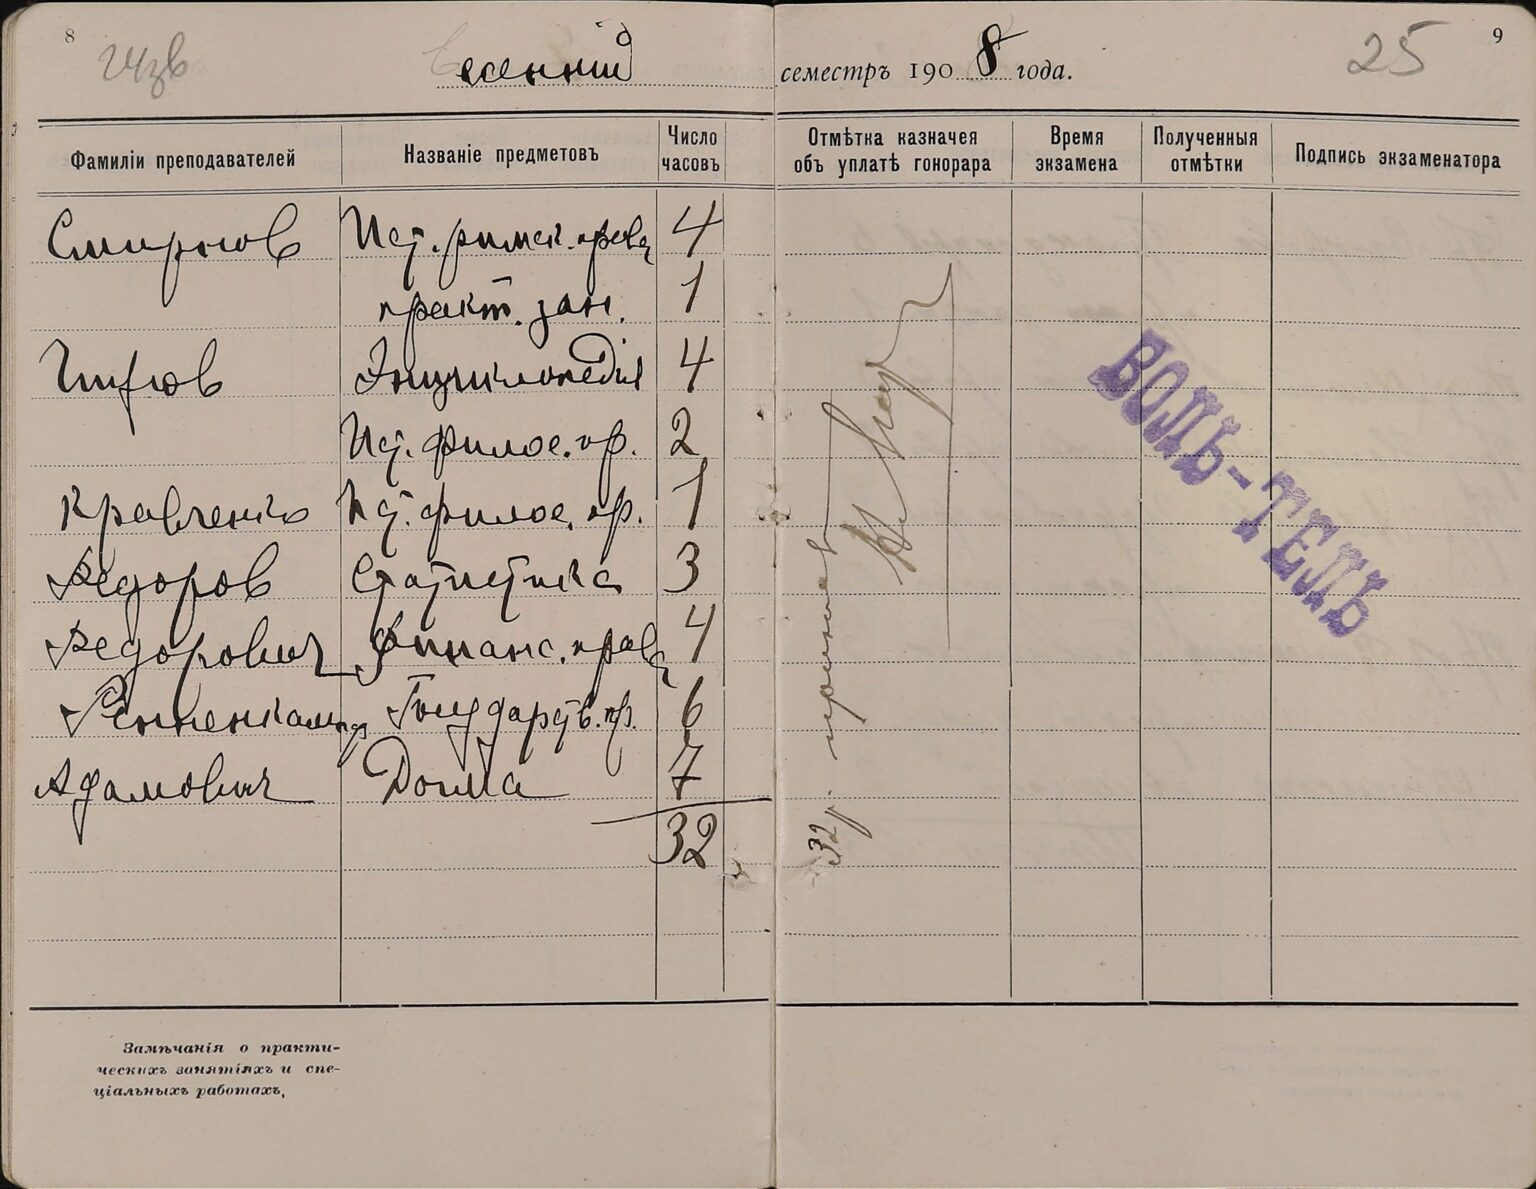 8
Весенній семестръ 1908 года.
25
9
Фамиліи преподавателей Названіе предметовъ Число часовъ Отмѣтка казначея объ уплатѣ гонорара Время экзамена Полученныя отмѣтки Подпись экзаменатора
Смирновъ Ист. римск. права 4
практ. зан. 1
Энциклопедія 4
Ист. филос. пр. 2
Кравченко Ист. филос. пр. 1
Федоров Статистика 3
Федорович Финанс. права 4
Ренненкампф Государств. пр. 6
Адамович Догма 7
32
32 р. принялъ
ВОЛЬ-ТЕЛЬ
Замѣчанія о практи-
ческихъ занятіяхъ и спе-
ціальныхъ работахъ,